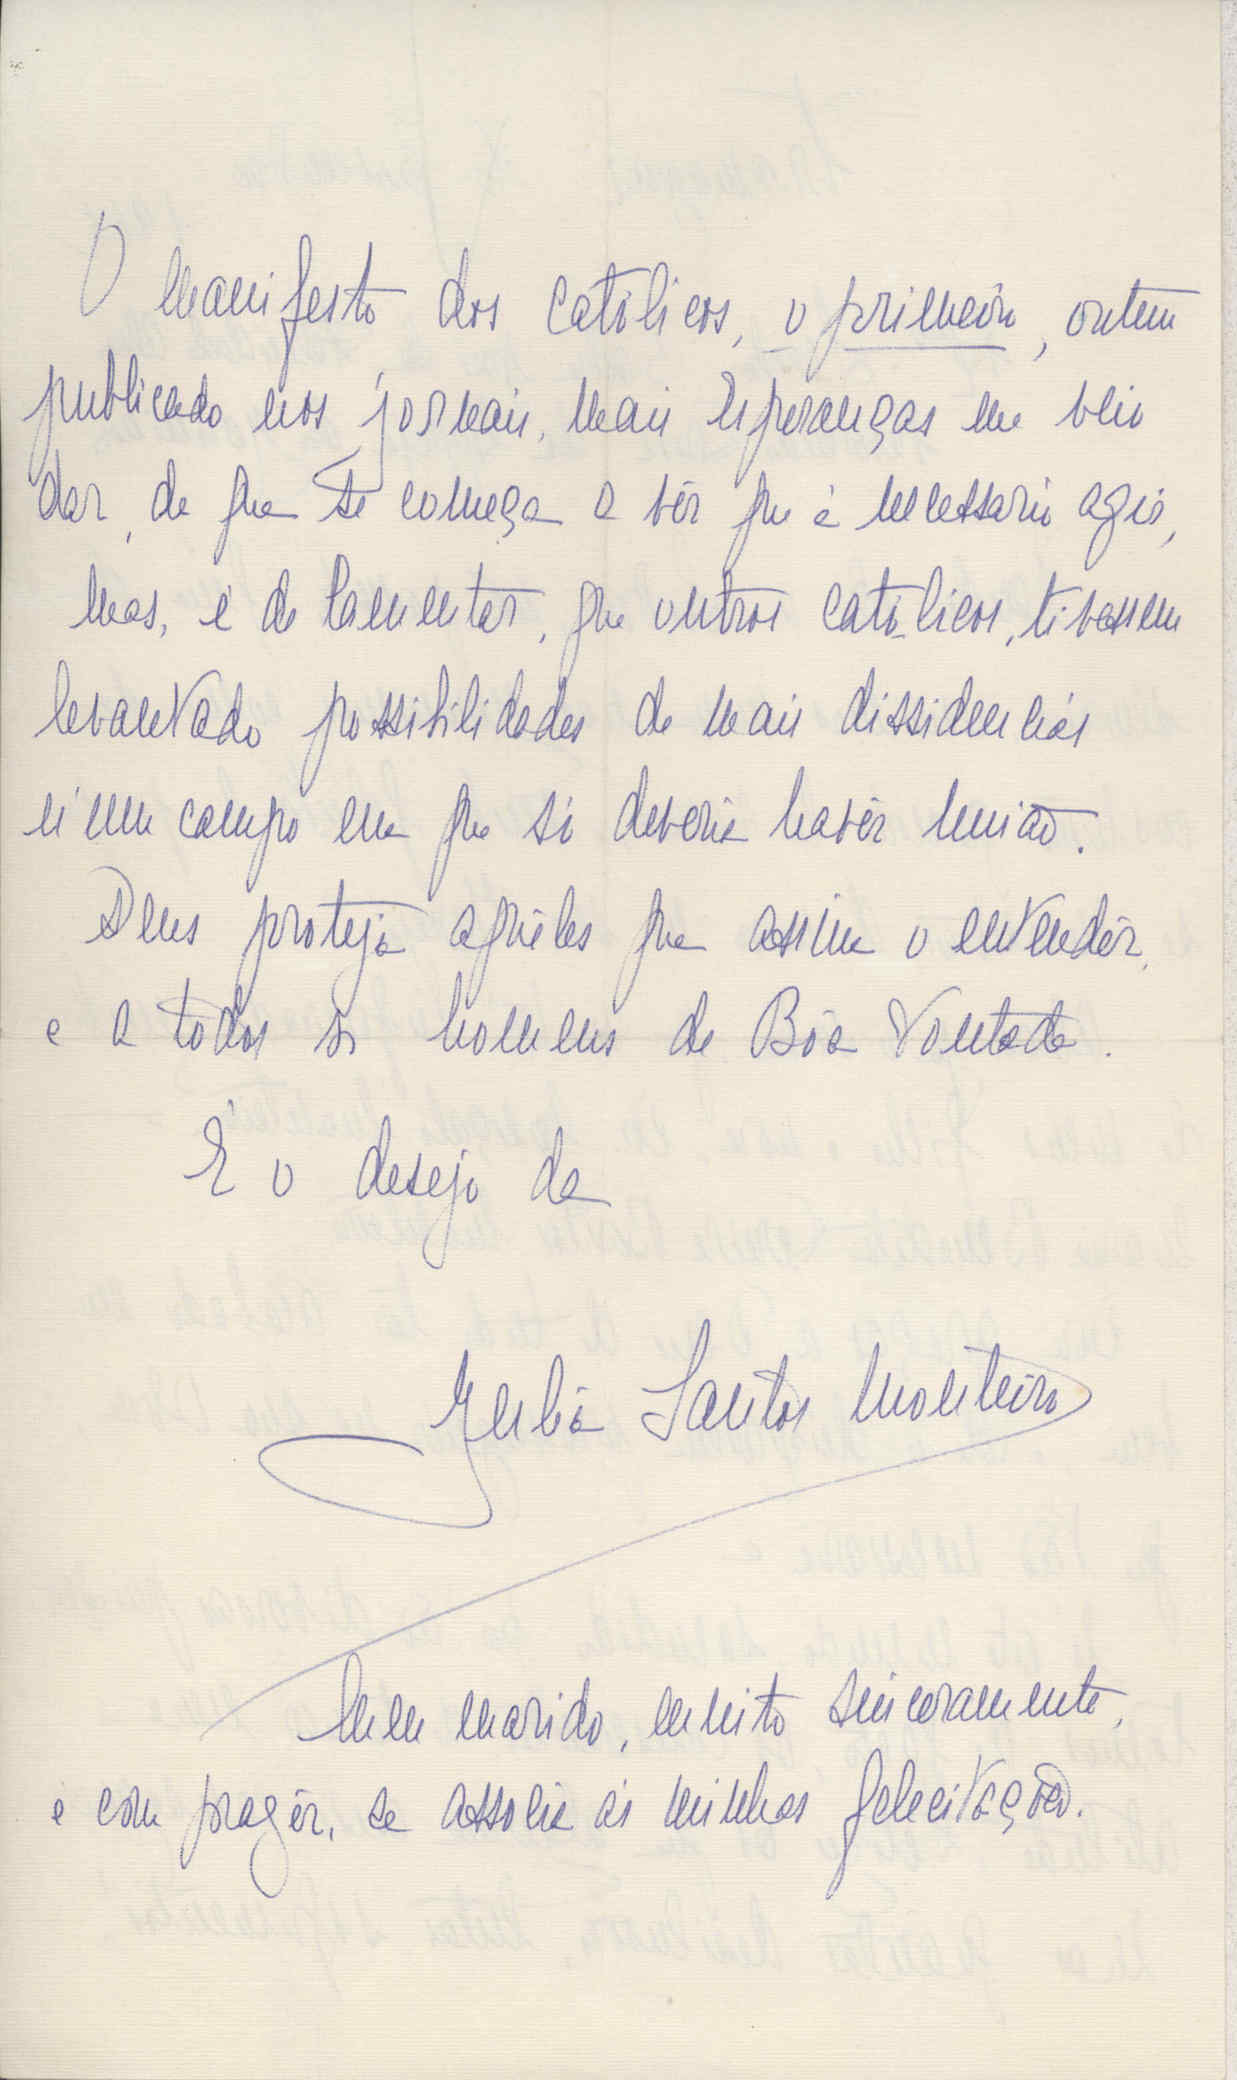 O manifesto dos católicos, o primeiro, ontem
publicado nos jornais, mais esperanças me veio
dar, de que se começa a vêr que é necessario agir,
mas, é de lamentar, que outros católicos, tivessem
levantado possibilidades de mais dissidencias
n'um campo em que só deveria havêr união.
Deus proteja aquêles que assim o entendêr,
e a todos os homens de Bôa Vontade.
É o desejo da
Santos Monteiro
Meu marido, muito sinceramente,
e com prazêr, se associa ás minhas felicitações.